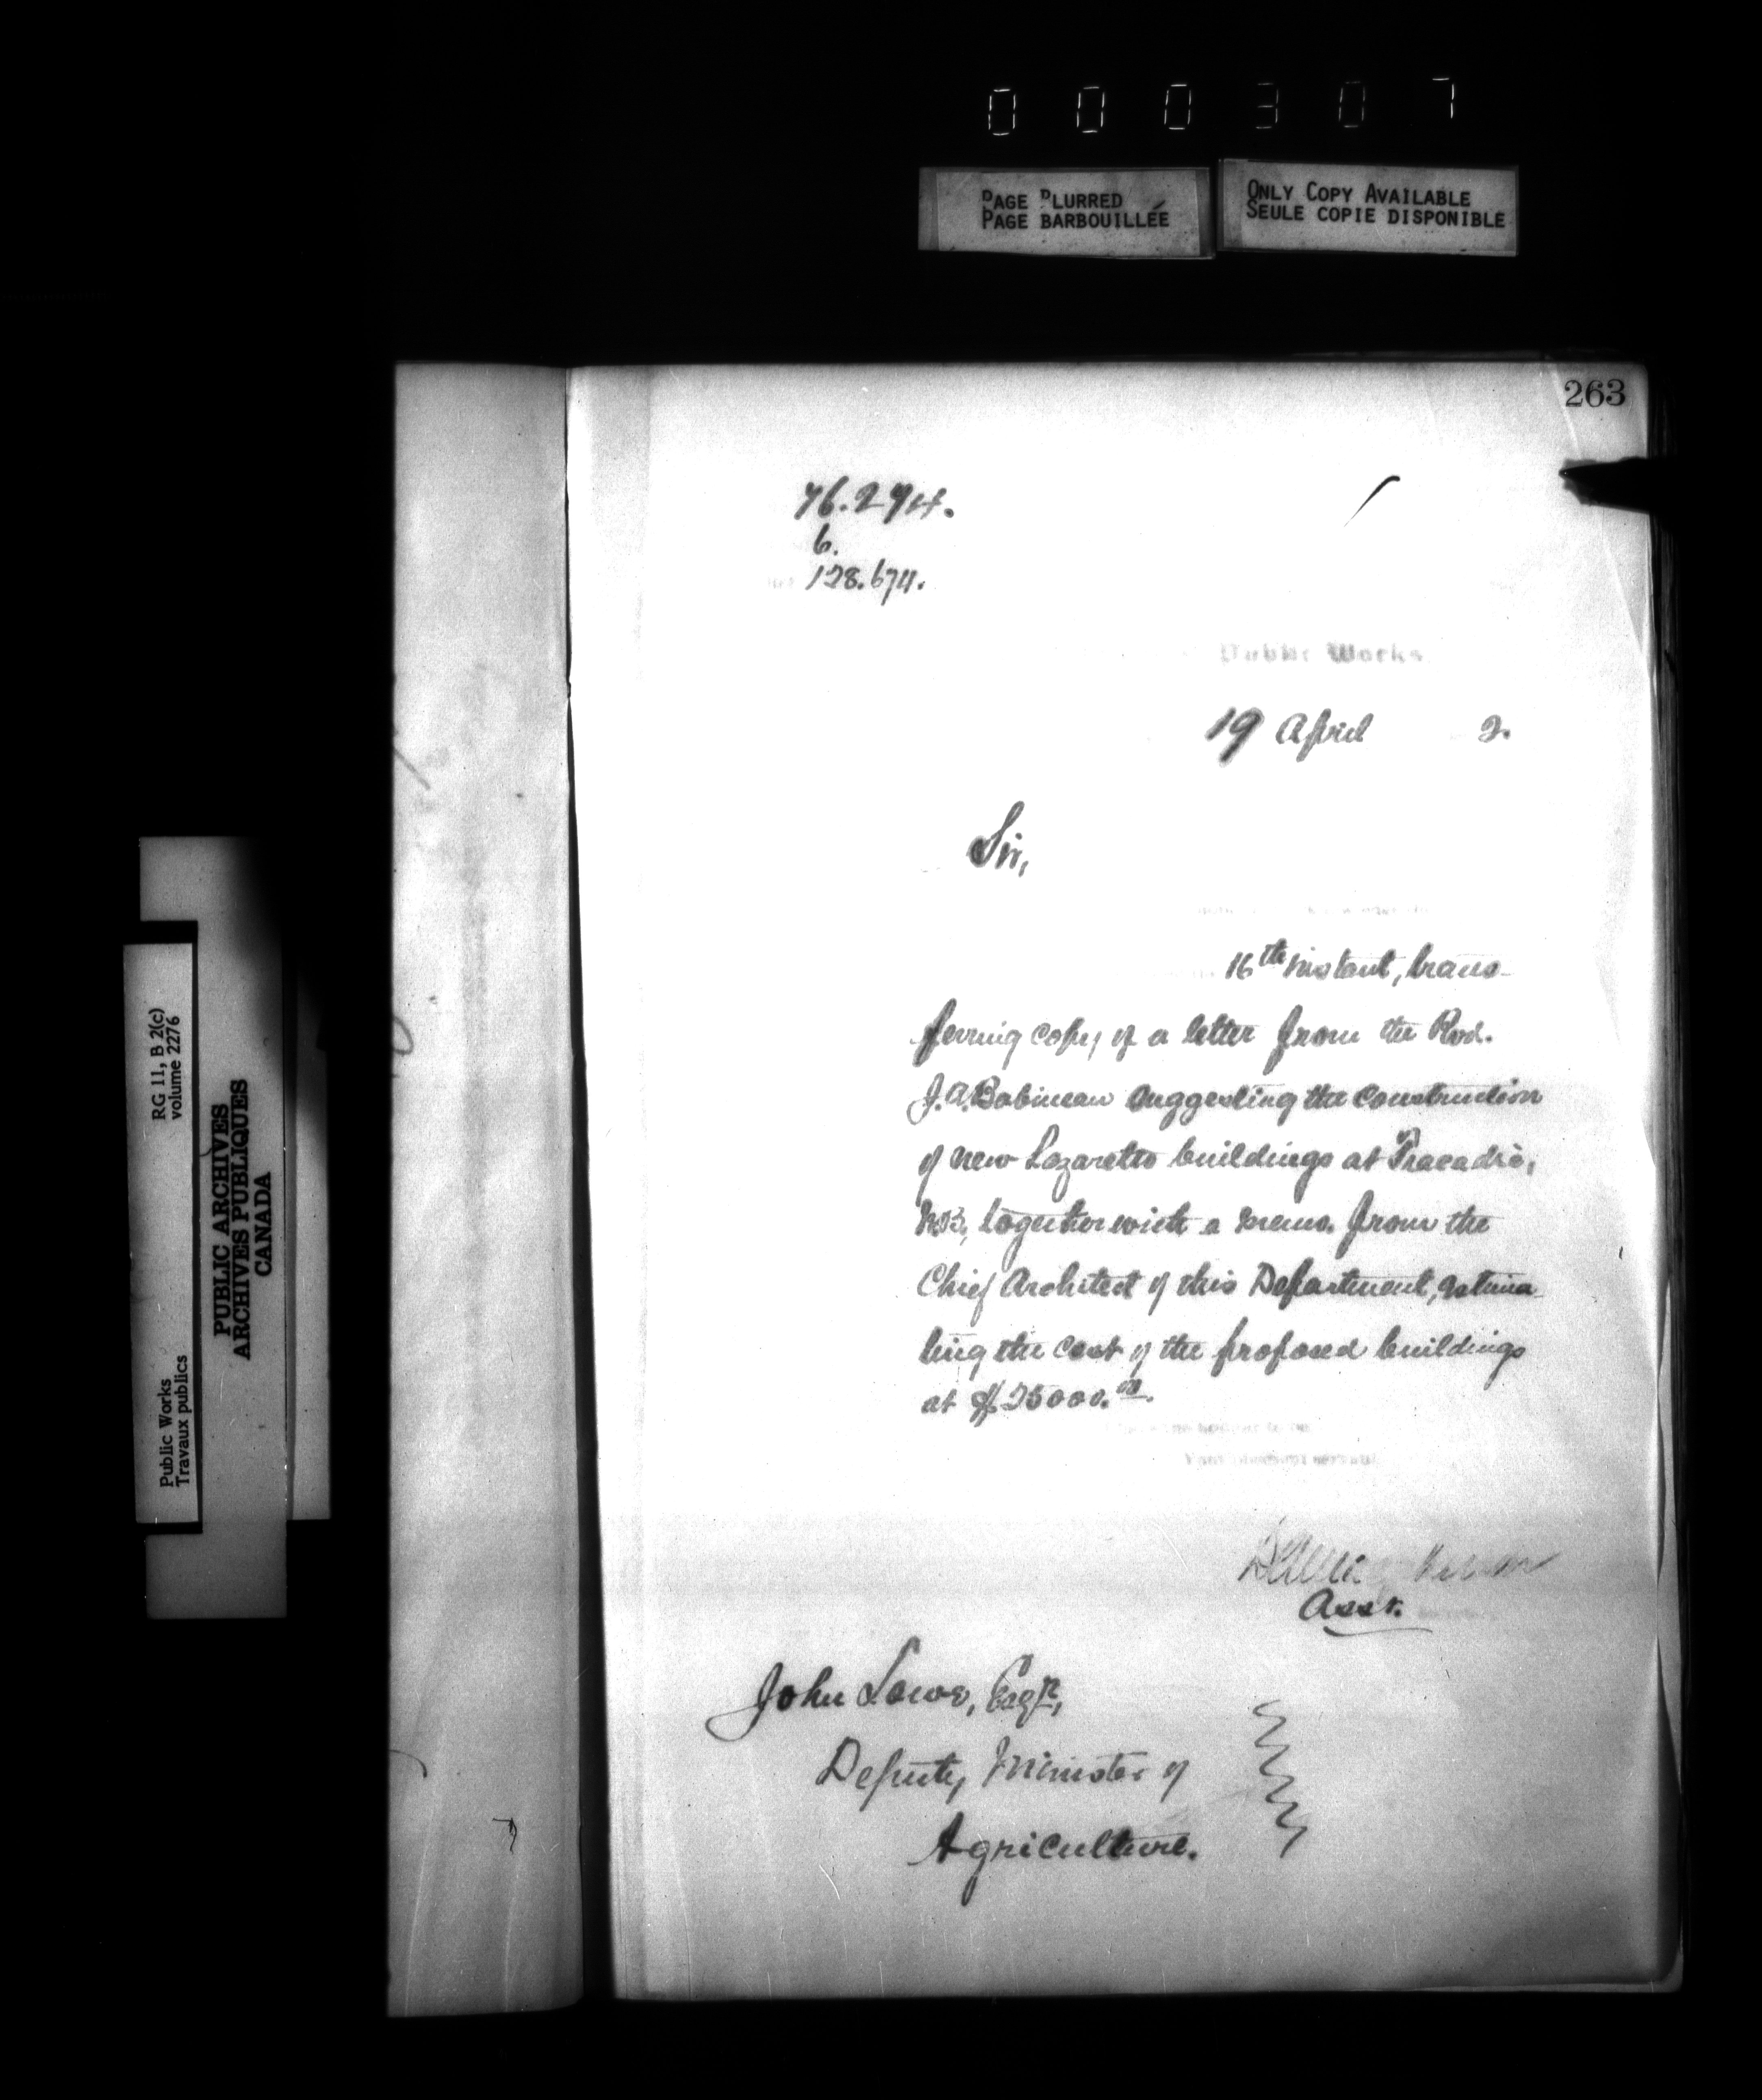 000307
PAGE BLURRED
PAGE BARBOUILLÉE
ONLY COPY AVAILABLE
SEULE COPIE DISPONIBLE
263
76.294.
6.
128.674.
Public Works
19 April 2.
Sir,
16th instant, trans-
ferring copy of a letter from the Rvd.
J. A. Babineau suggesting the construction
of new Lazaretto buildings at Tracadie,
N.B, together with a memo. from the
Chief Architect of this Department, estima-
ting the cost of the proposed buildings
at $25000.00.
the honour to be
Your obedient servant
Asst.
John Lowe, Esqr,
Deputy Minister of
Agriculture.
Public Works
Travaux publics
RG 11, B 2(c)
volume 2276
PUBLIC ARCHIVES
ARCHIVES PUBLIQUES
CANADA